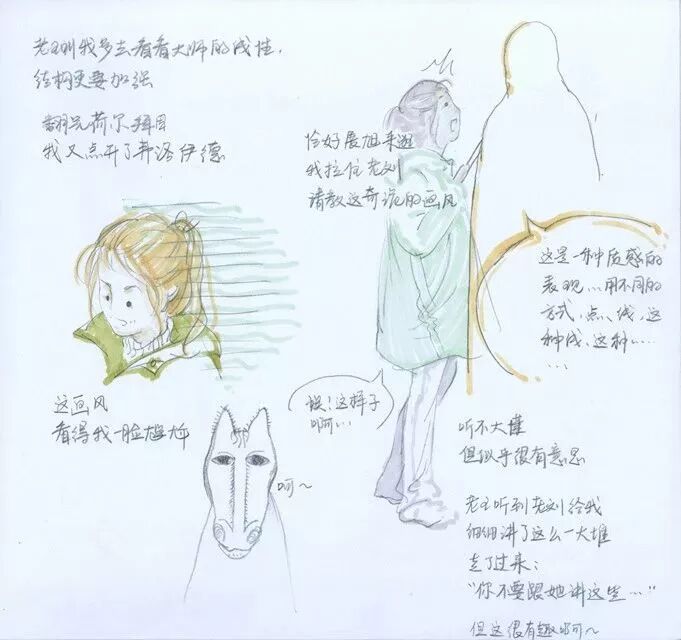 老王叫我多去看看大师的线性,
结构更要加强
翻完荷尔拜因
我又点开了弗洛伊德
恰好展旭来逛
我拉住老刘
请教这奇诡的画风
这是一种质感的
表现...用不同的
方式,点、线、这
种线、这种……
……
这画风
看得我一脸尴尬
呵~
诶!这样子
啊…
听不大懂
但似乎很有意思
老王听到老刘给我
细细讲了这么一大堆
走了过来:
“你不要跟她讲这些…”
但这很有趣呵~